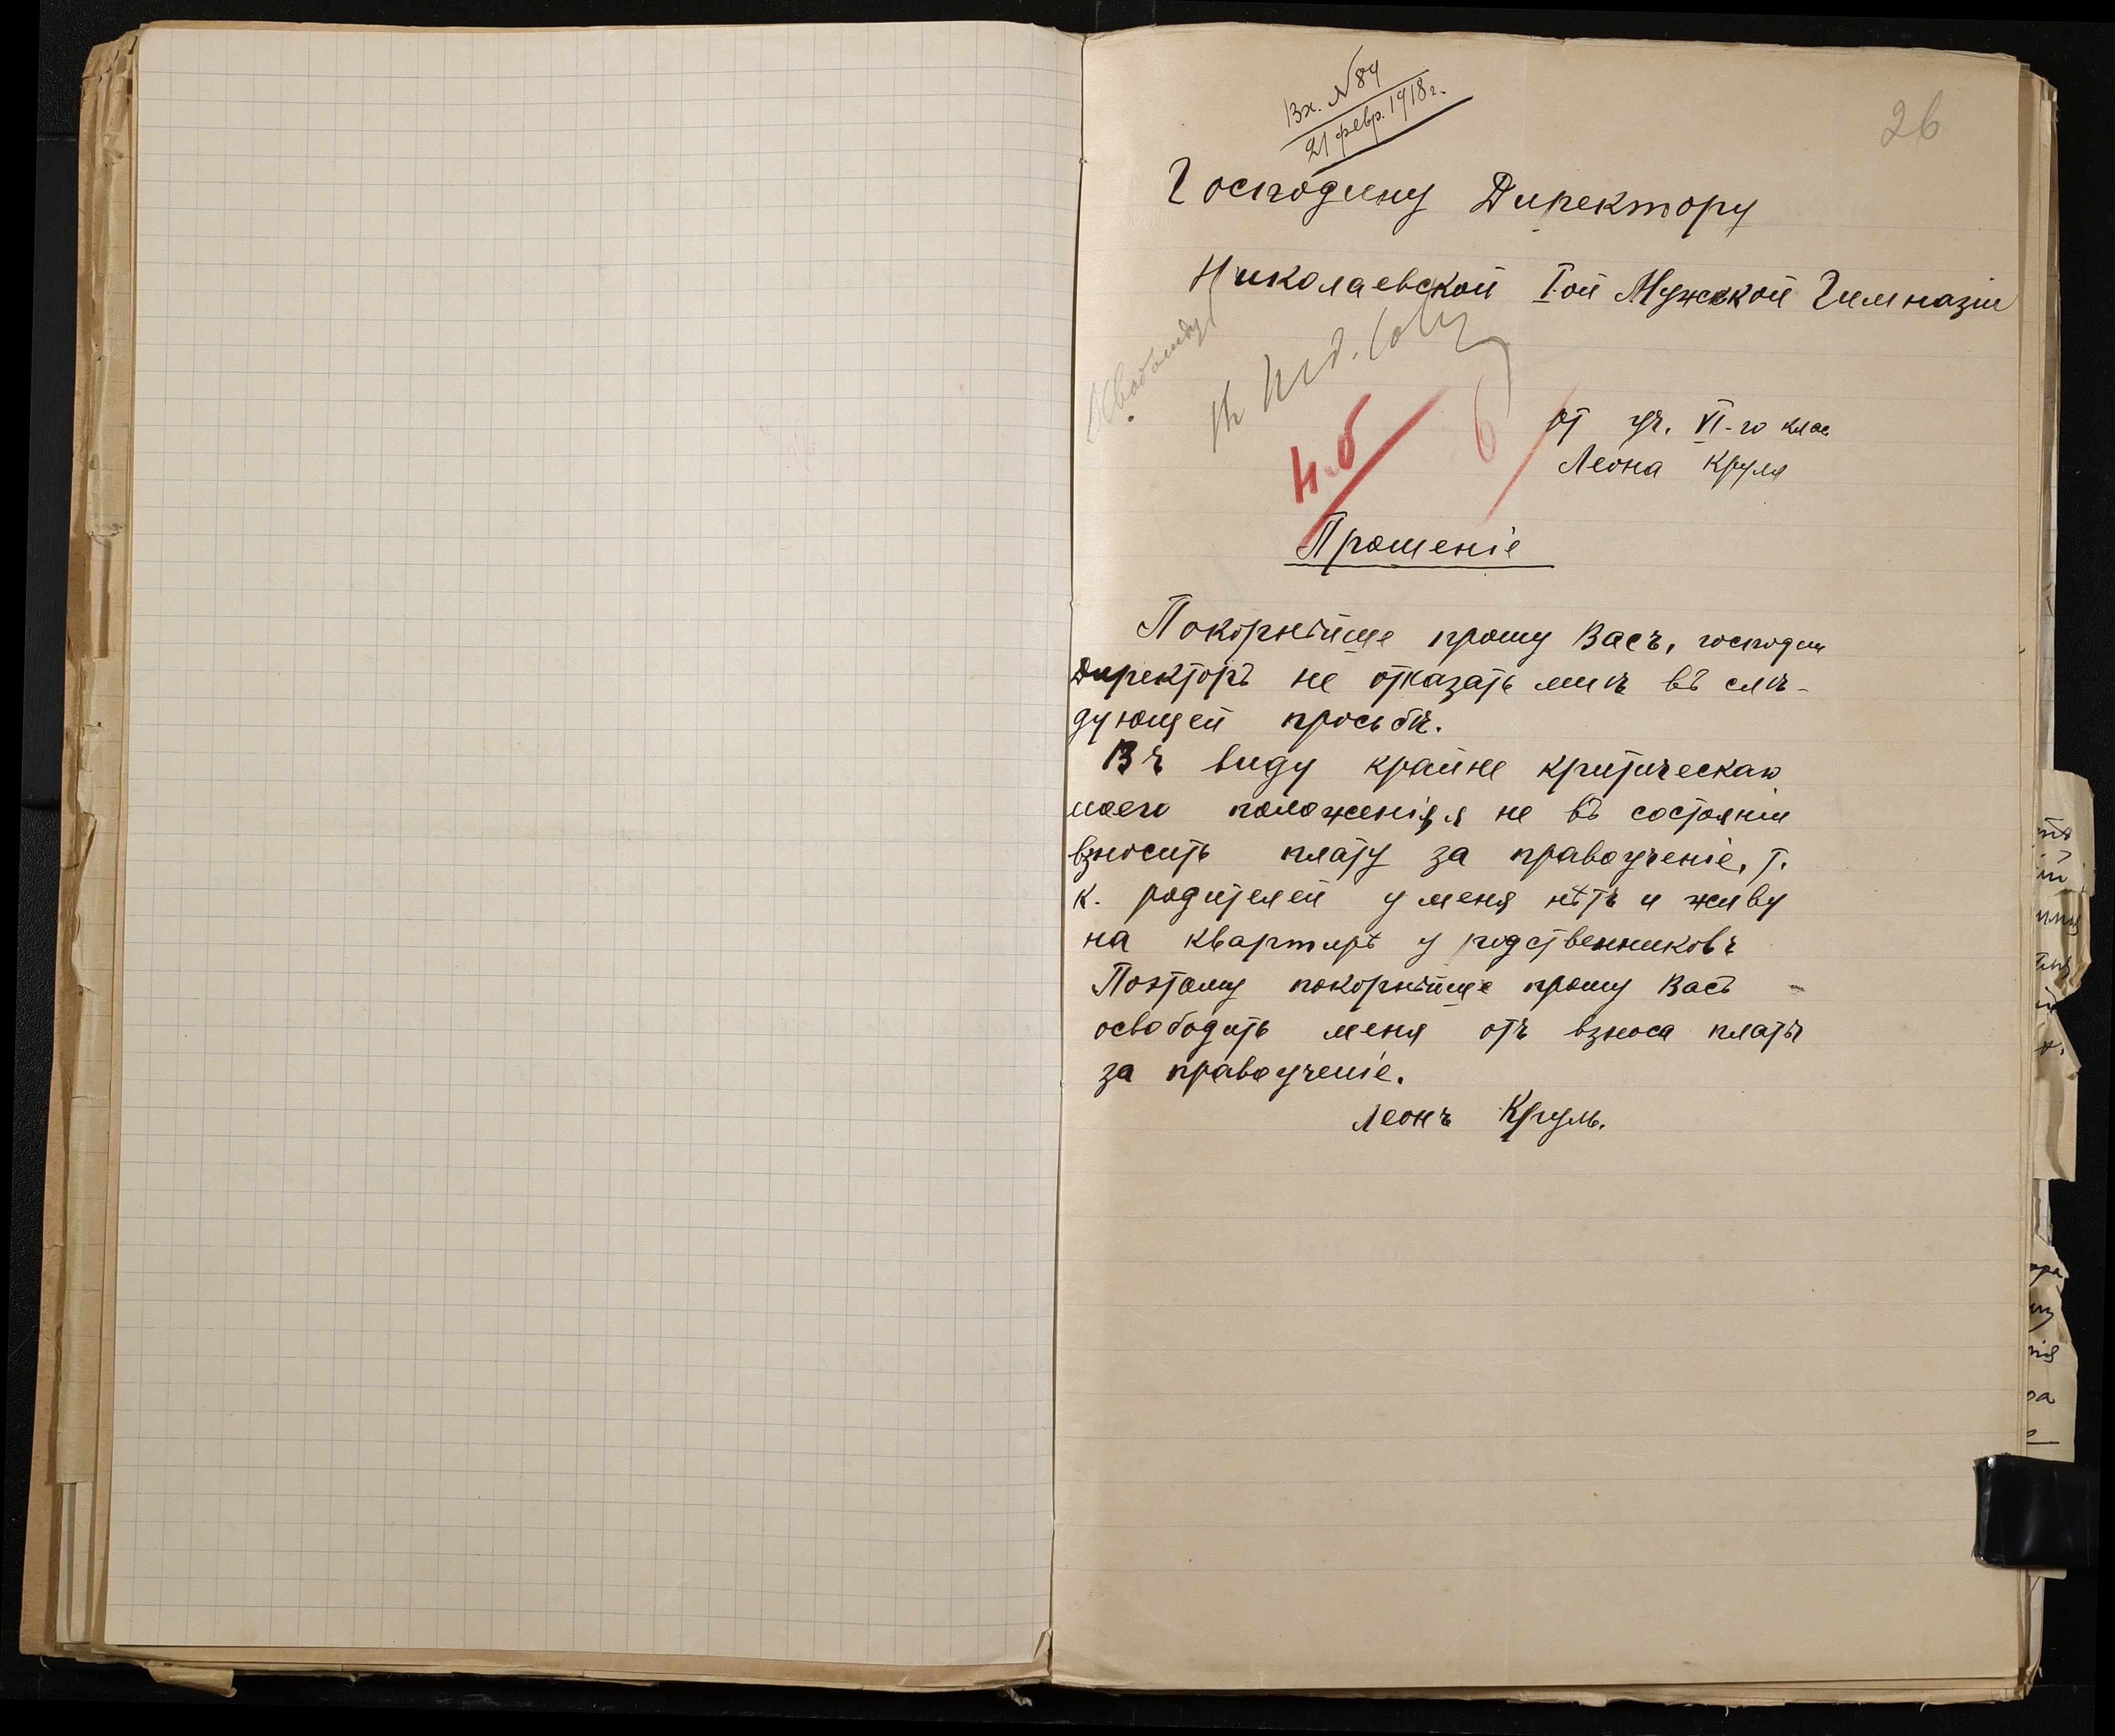 Вх. №84
21 февр. 1918 г.
26
Господину Директору
Николаевской I-ой Мужской Гимназіи
къ Пед. Сов.
н.б 6
От уч. VI-го клас
Леона Круля
Прошеніе
Покорнѣйше прошу Васъ, господин
Директоръ не отказать мнѣ въ слѣ-
дующей просьбѣ.
Въ виду крайне критическаго
моего положенія, я не въ состояніи
взносить плату за правоученіе, т.
к. родителей у меня нѣтъ и живу
на квартирѣ у родственниковъ
Поэтому покорнѣйще прошу Васъ
освободить меня отъ взноса платы
за правоученіе.
Леонъ Круль.